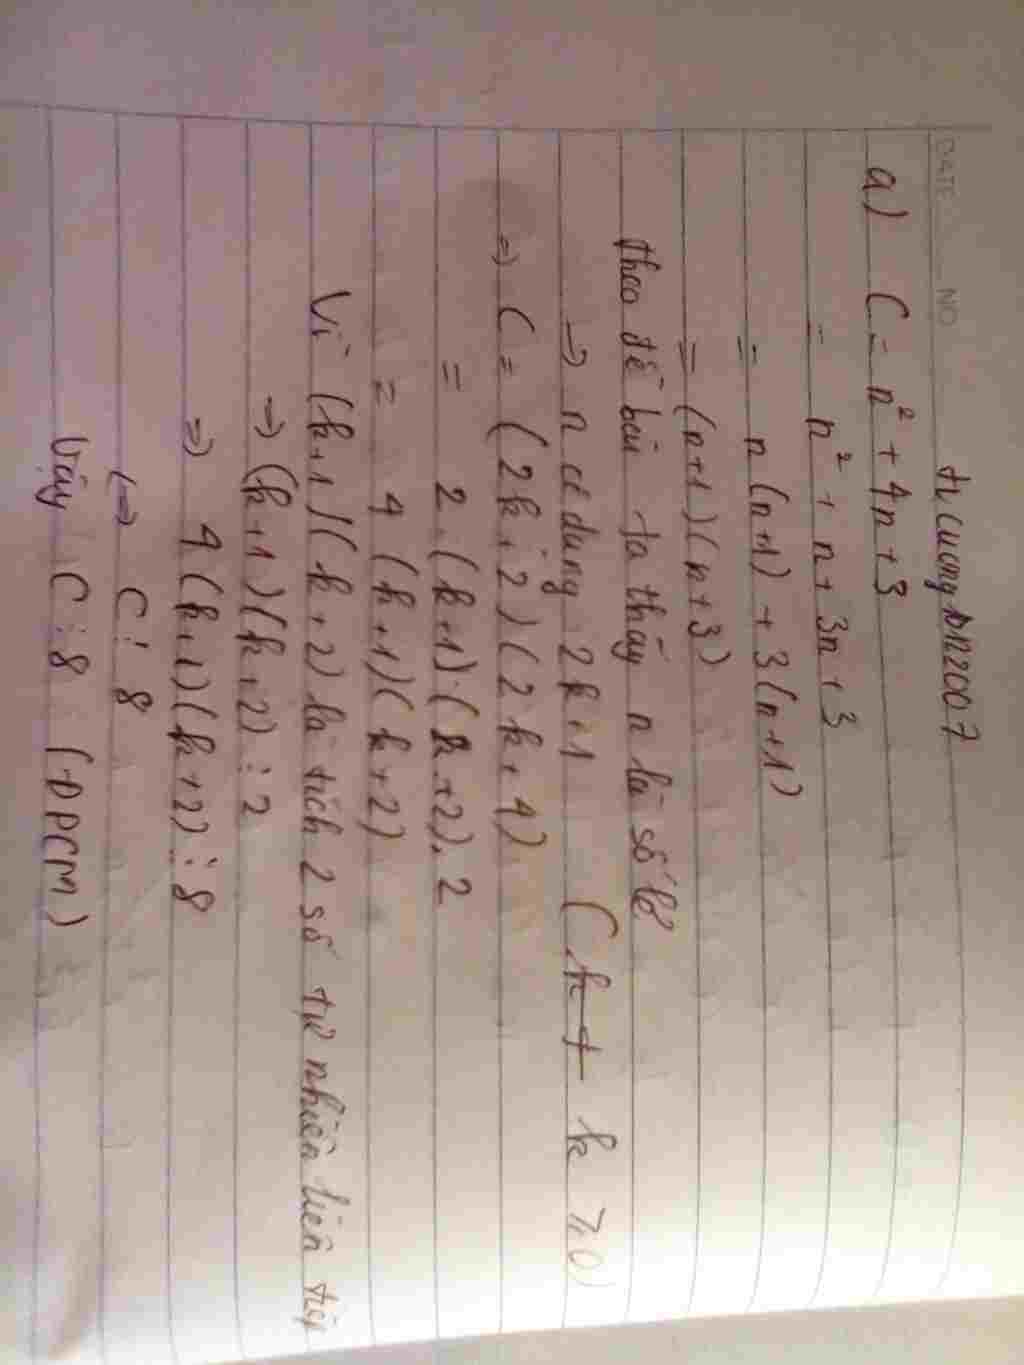 DATE NO
tucuongbn2007
a) C = n² + 4n + 3
= n² + n + 3n + 3
= n(n+1) + 3(n+1)
= (n+1)(n+3)
theo đề bài ta thấy n là số lẻ
→ n có dạng 2k+1 (k ≥ 0)
⇒ C = (2k+2)(2k+4)
= 2.(k+1).(k+2).2
= 4(k+1)(k+2)
Vì (k+1)(k+2) là tích 2 số tự nhiên liên tiếp
⇒ (k+1)(k+2) ⋮ 2
⇒ 4(k+1)(k+2) ⋮ 8
(⇒) C ⋮ 8
Vậy C ⋮ 8 (ĐPCM)